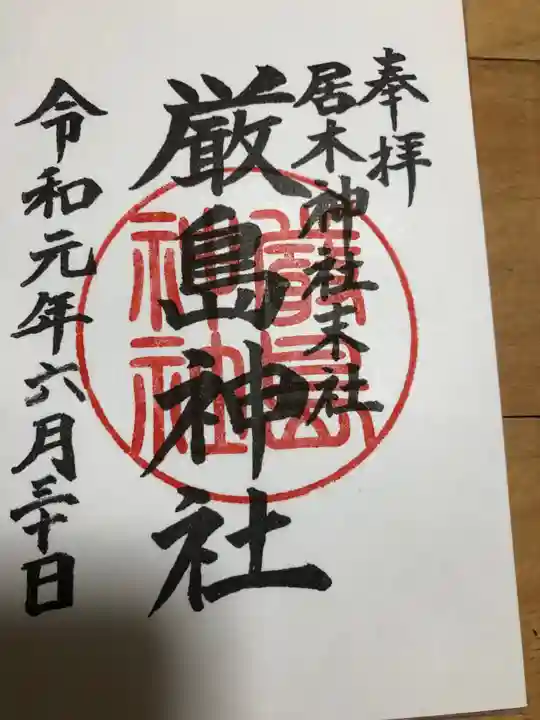 奉拝
居木神社末社
厳島神社
嚴島
神社
令和元年六月三十日